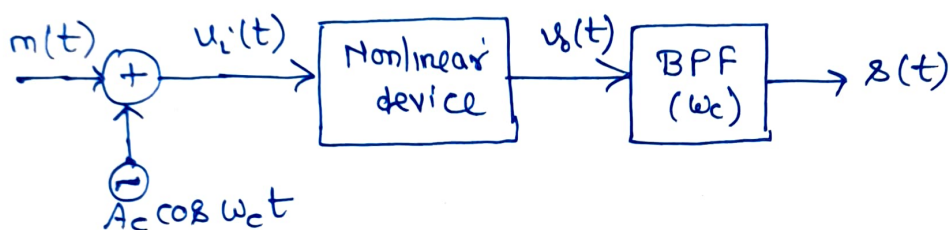 m(t)
+
vᵢ(t)
Nonlinear
device
v₀(t)
BPF
(ωc)
s(t)
~
Ac cos ωc t